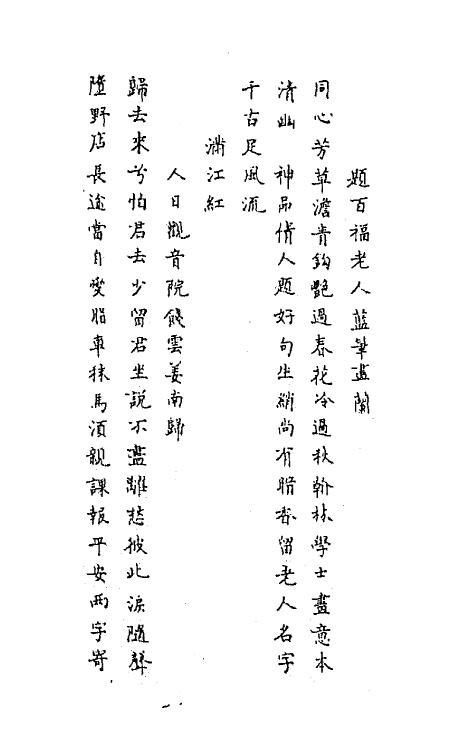 題百福老人藍筆畫蘭
同心芳草澹青鈎艶過春花冷過秋翰林學士畫意本
清幽　神品倩人題好句生綃尚有暗香留老人名字
千古足風流
滿江紅
人日觀音院餞雲姜南歸
歸去來兮怕君去少留君坐說不盡離愁彼此淚隨聲
墮野店長途當自愛脂車秣馬須親課報平安兩字寄